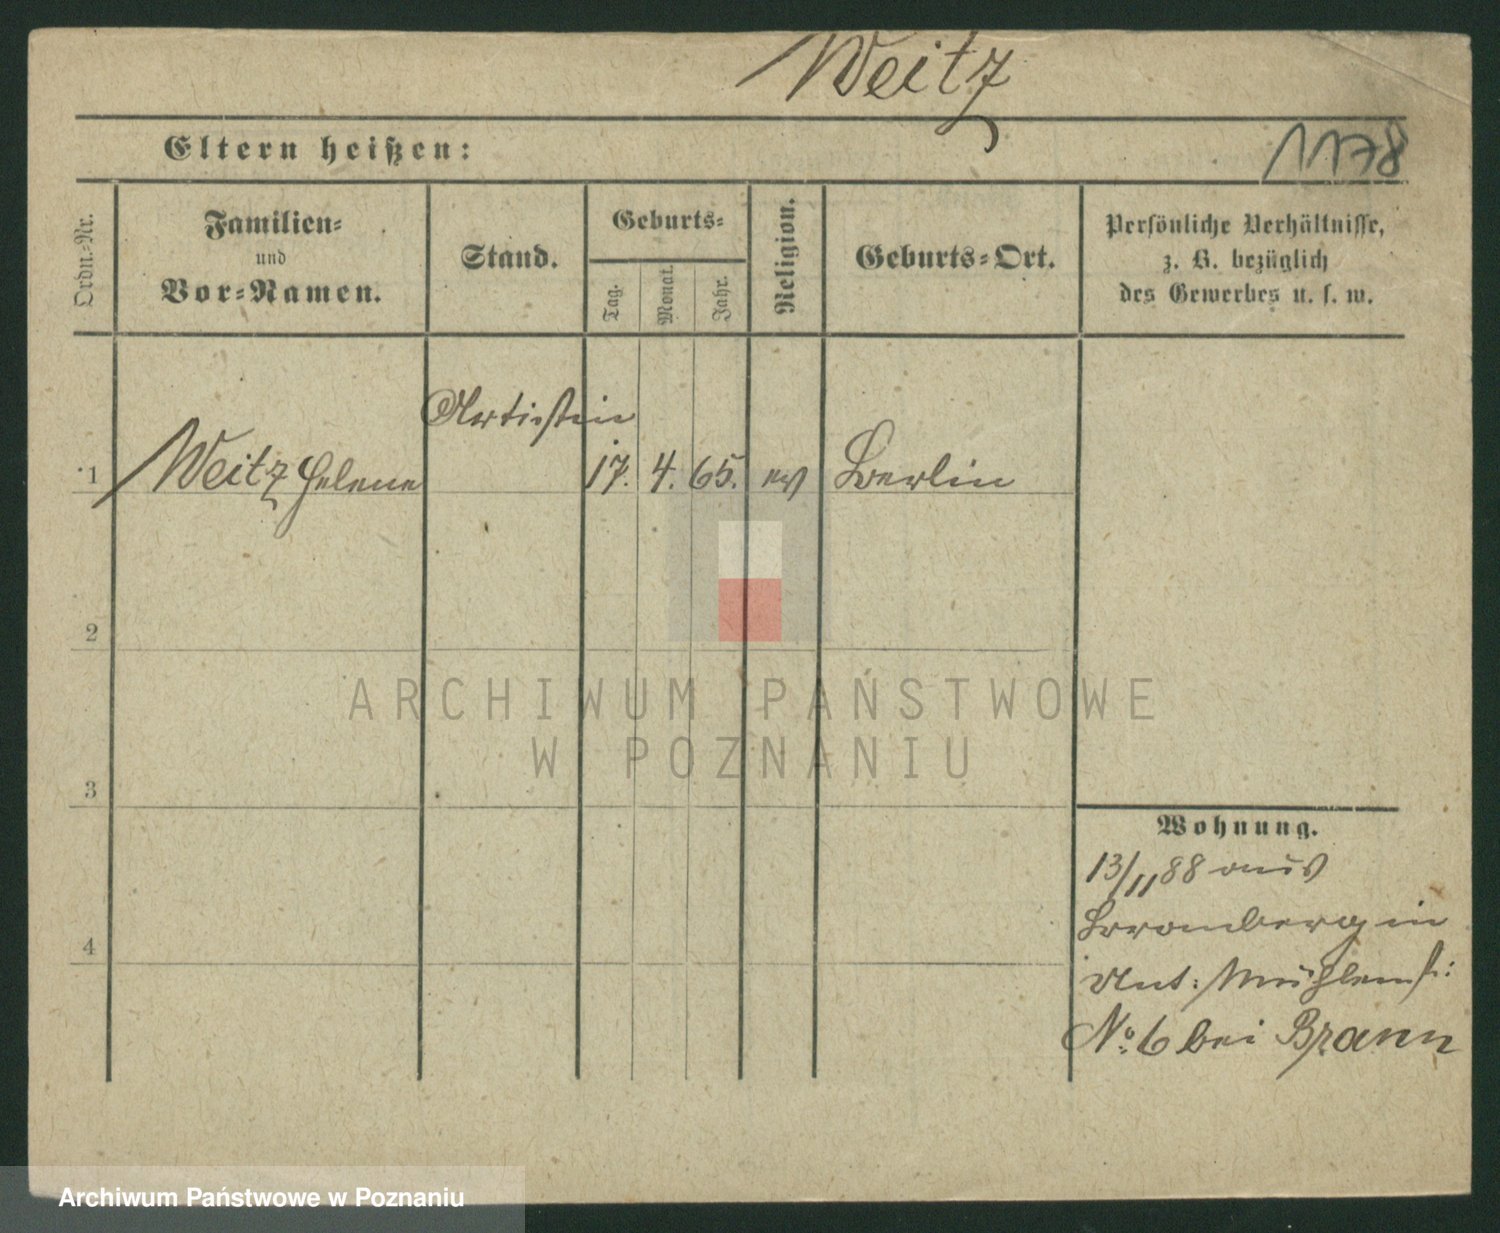 Weitz
Eltern heißen:
1178
Ordn.=Nr.
Familien=
und
Vor=Namen.
Stand.
Geburts=
Tag.
Monat.
Jahr.
Religion.
Geburts=Ort.
Persönliche Verhältnisse,
z. B. bezüglich
des Gewerbes u. s. w.
Artistin
1 Weitz Helene 17. 4. 65. ev Berlin
2
3
4
ARCHIWUM PAŃSTWOWE
W POZNANIU
Wohnung.
13/11 88 aus
Bromberg in
Unt: Mühlenst:
No: 6 bei Brann
Archiwum Państwowe w Poznaniu